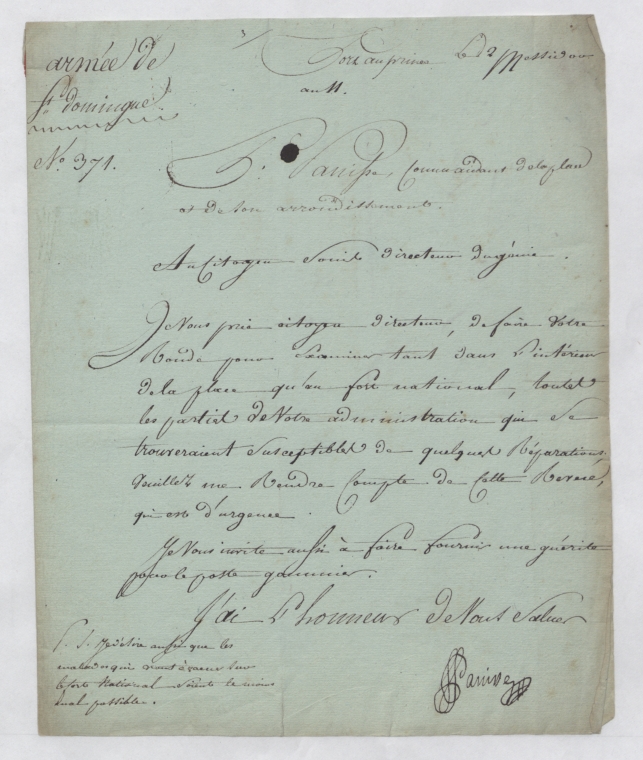 armée de
St. domingue.
No. 371.
Port au prince le 12 Messidor
an 11.
P. Panisse, Commandant dela place
et de son arrondissement.
Au Citoyen Sorrel directeur dugénie.
Je Vous prie citoyen directeur, de faire Votre
Ronde pour Examiner tant dans l'intérieur
de la place qu'au fort national, toutes
les parties de Votre administration qui Se
trouveraient Susceptibles de quelques Réparations.
Veuillez me Rendre Compte de Cette Revue,
qui est d'urgence.
Je Vous invite aussi à faire fournir une guérite
pour le poste
J'ai l'honneur de Vous Saluer
Panisse
P. S. Je désire aussi que les
malades qui sont sur
le fort National soient le moins
mal possible.